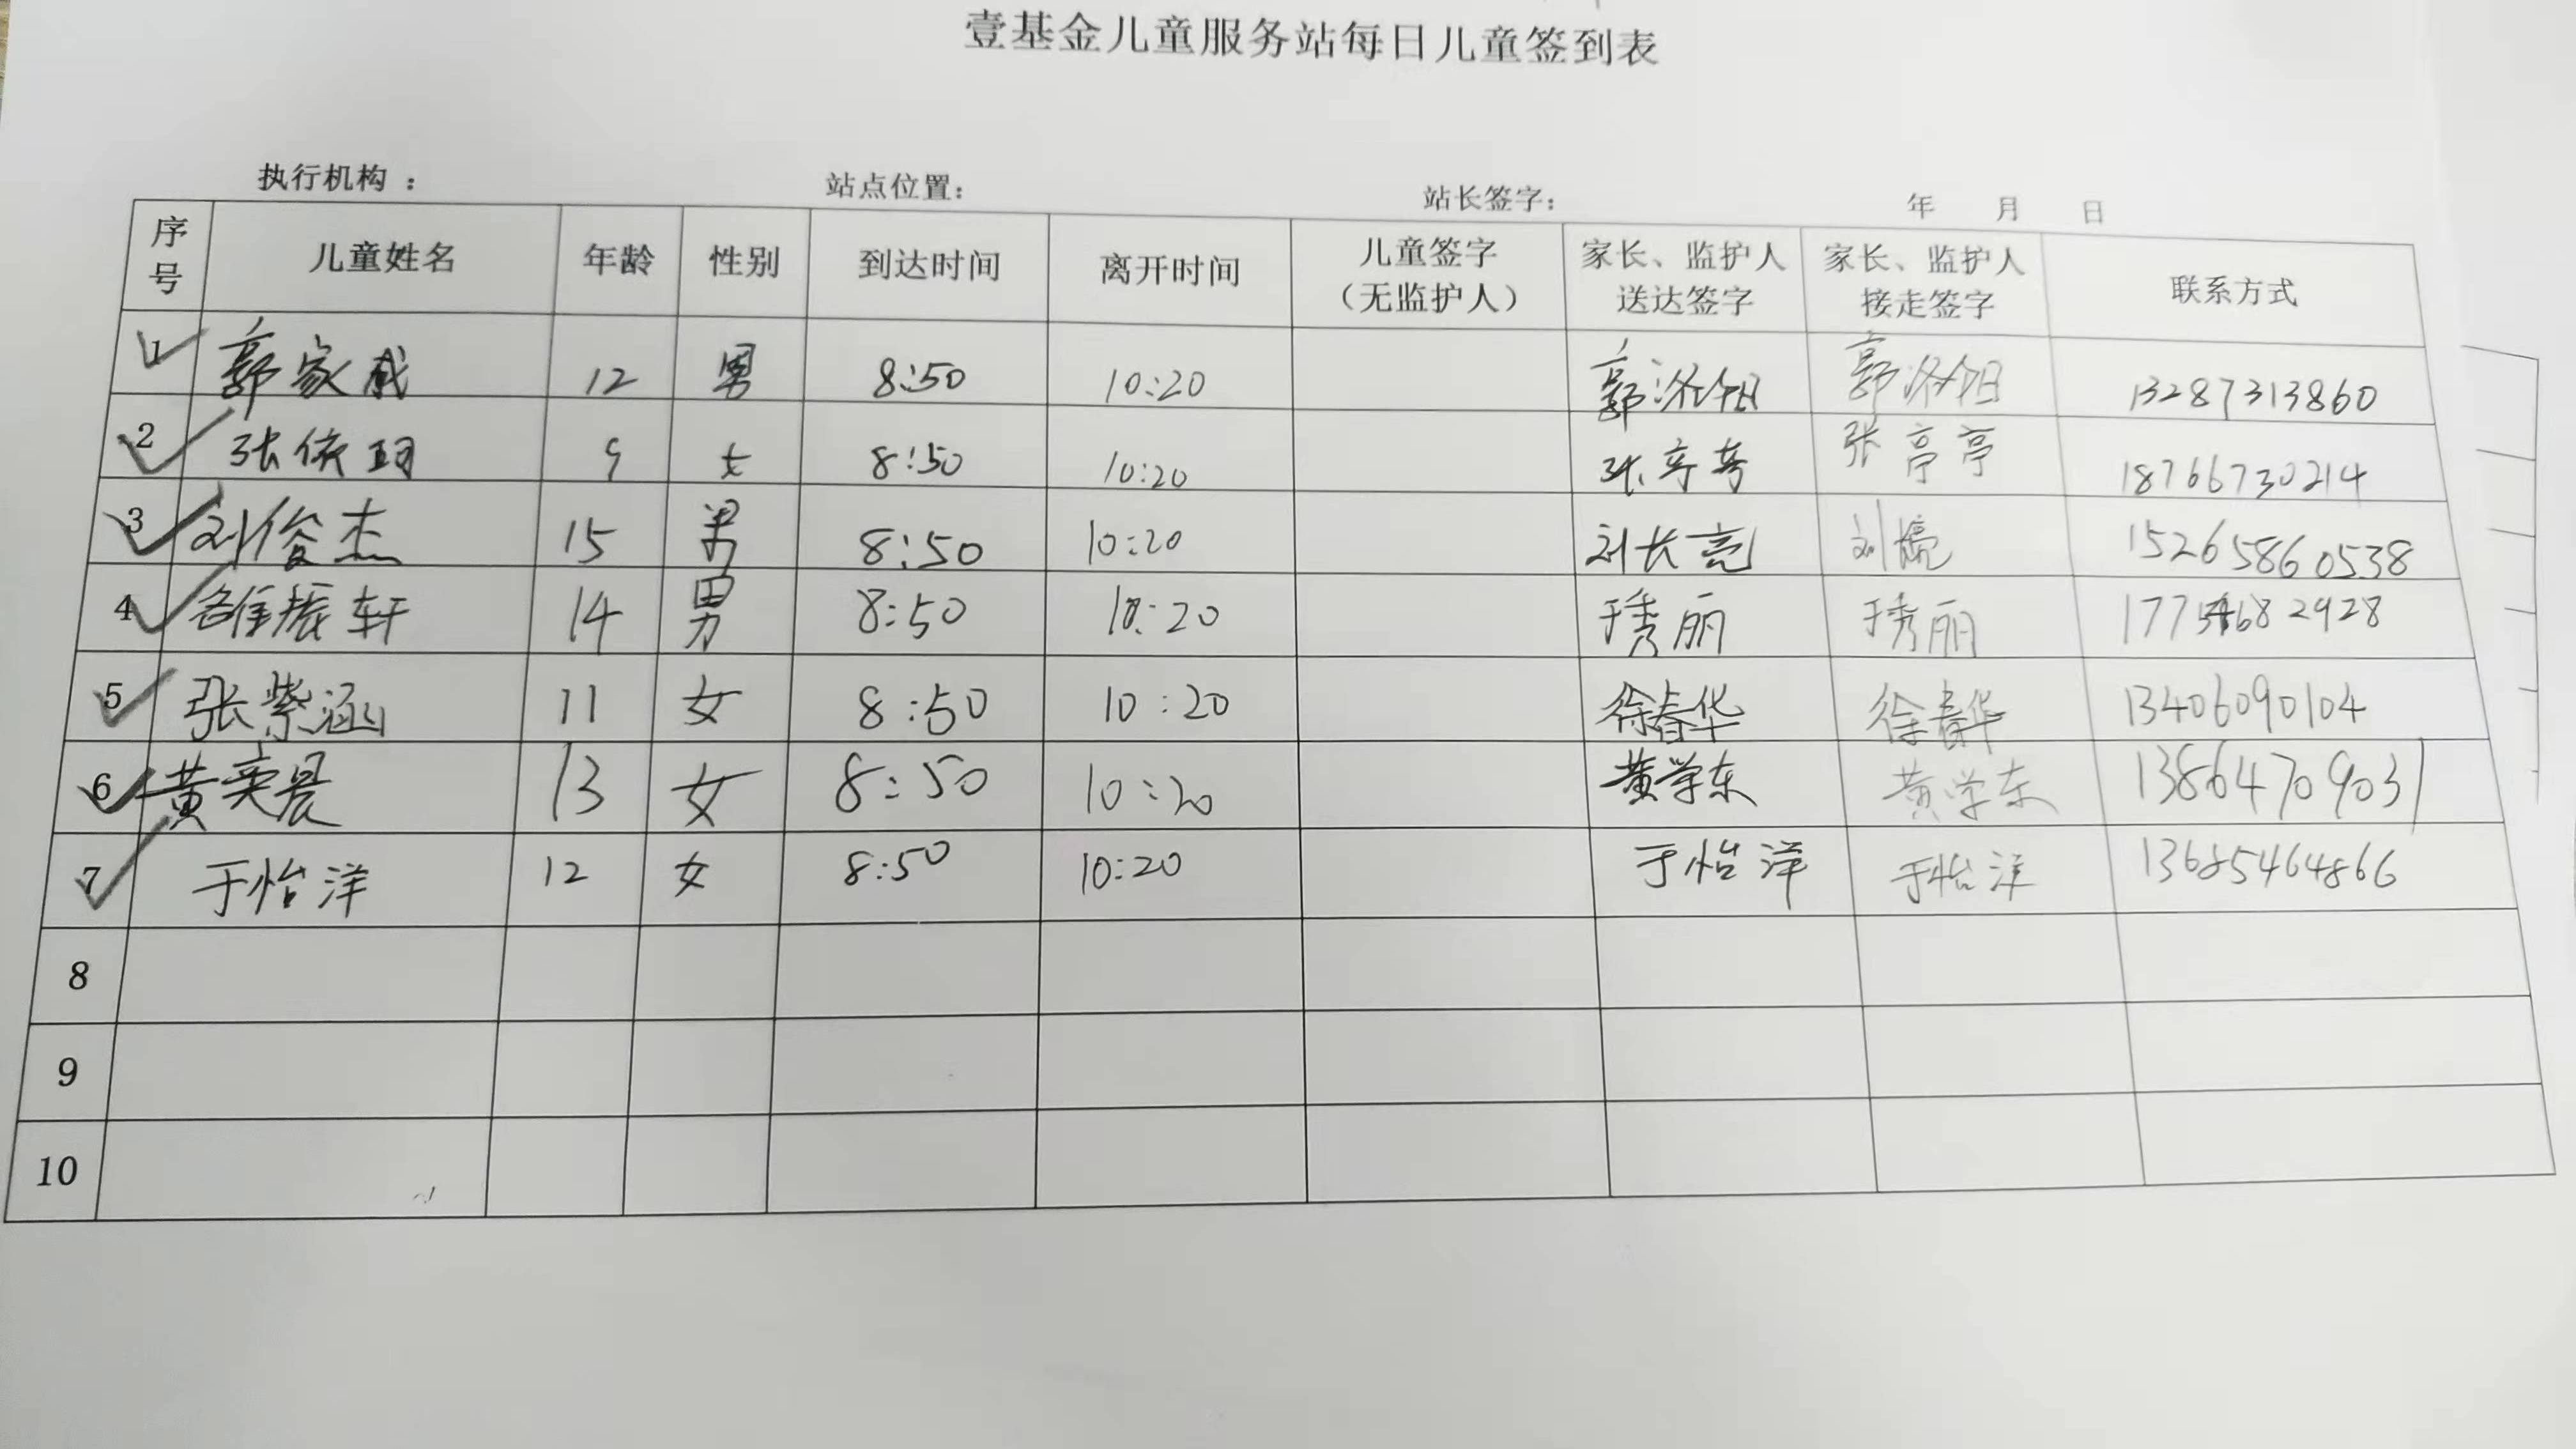 壹基金儿童服务站每日儿童签到表
执行机构： 站点位置： 站长签字： 年 月 日
序号 儿童姓名 年龄 性别 到达时间 离开时间 儿童签字（无监护人） 家长、监护人送达签字 家长、监护人接走签字 联系方式
1 郭家威 12 男 8:50 10:20 13287313860
2 张依珂 9 女 8:50 10:20 张亭亭 张亭亭 18766730214
3 刘俊杰 15 男 8:50 10:20 刘长亮 刘长亮 15265860538
4 雒振轩 14 男 8:50 10:20 于秀丽 于秀丽
5 张紫涵 11 女 8:50 10:20 徐春华 徐春华 13406090104
6 黄奕晨 13 女 8:50 10:20 黄学东 黄学东 13864709031
7 于怡洋 12 女 8:50 10:20 于怡洋 于怡洋 13685464866
8
9
10